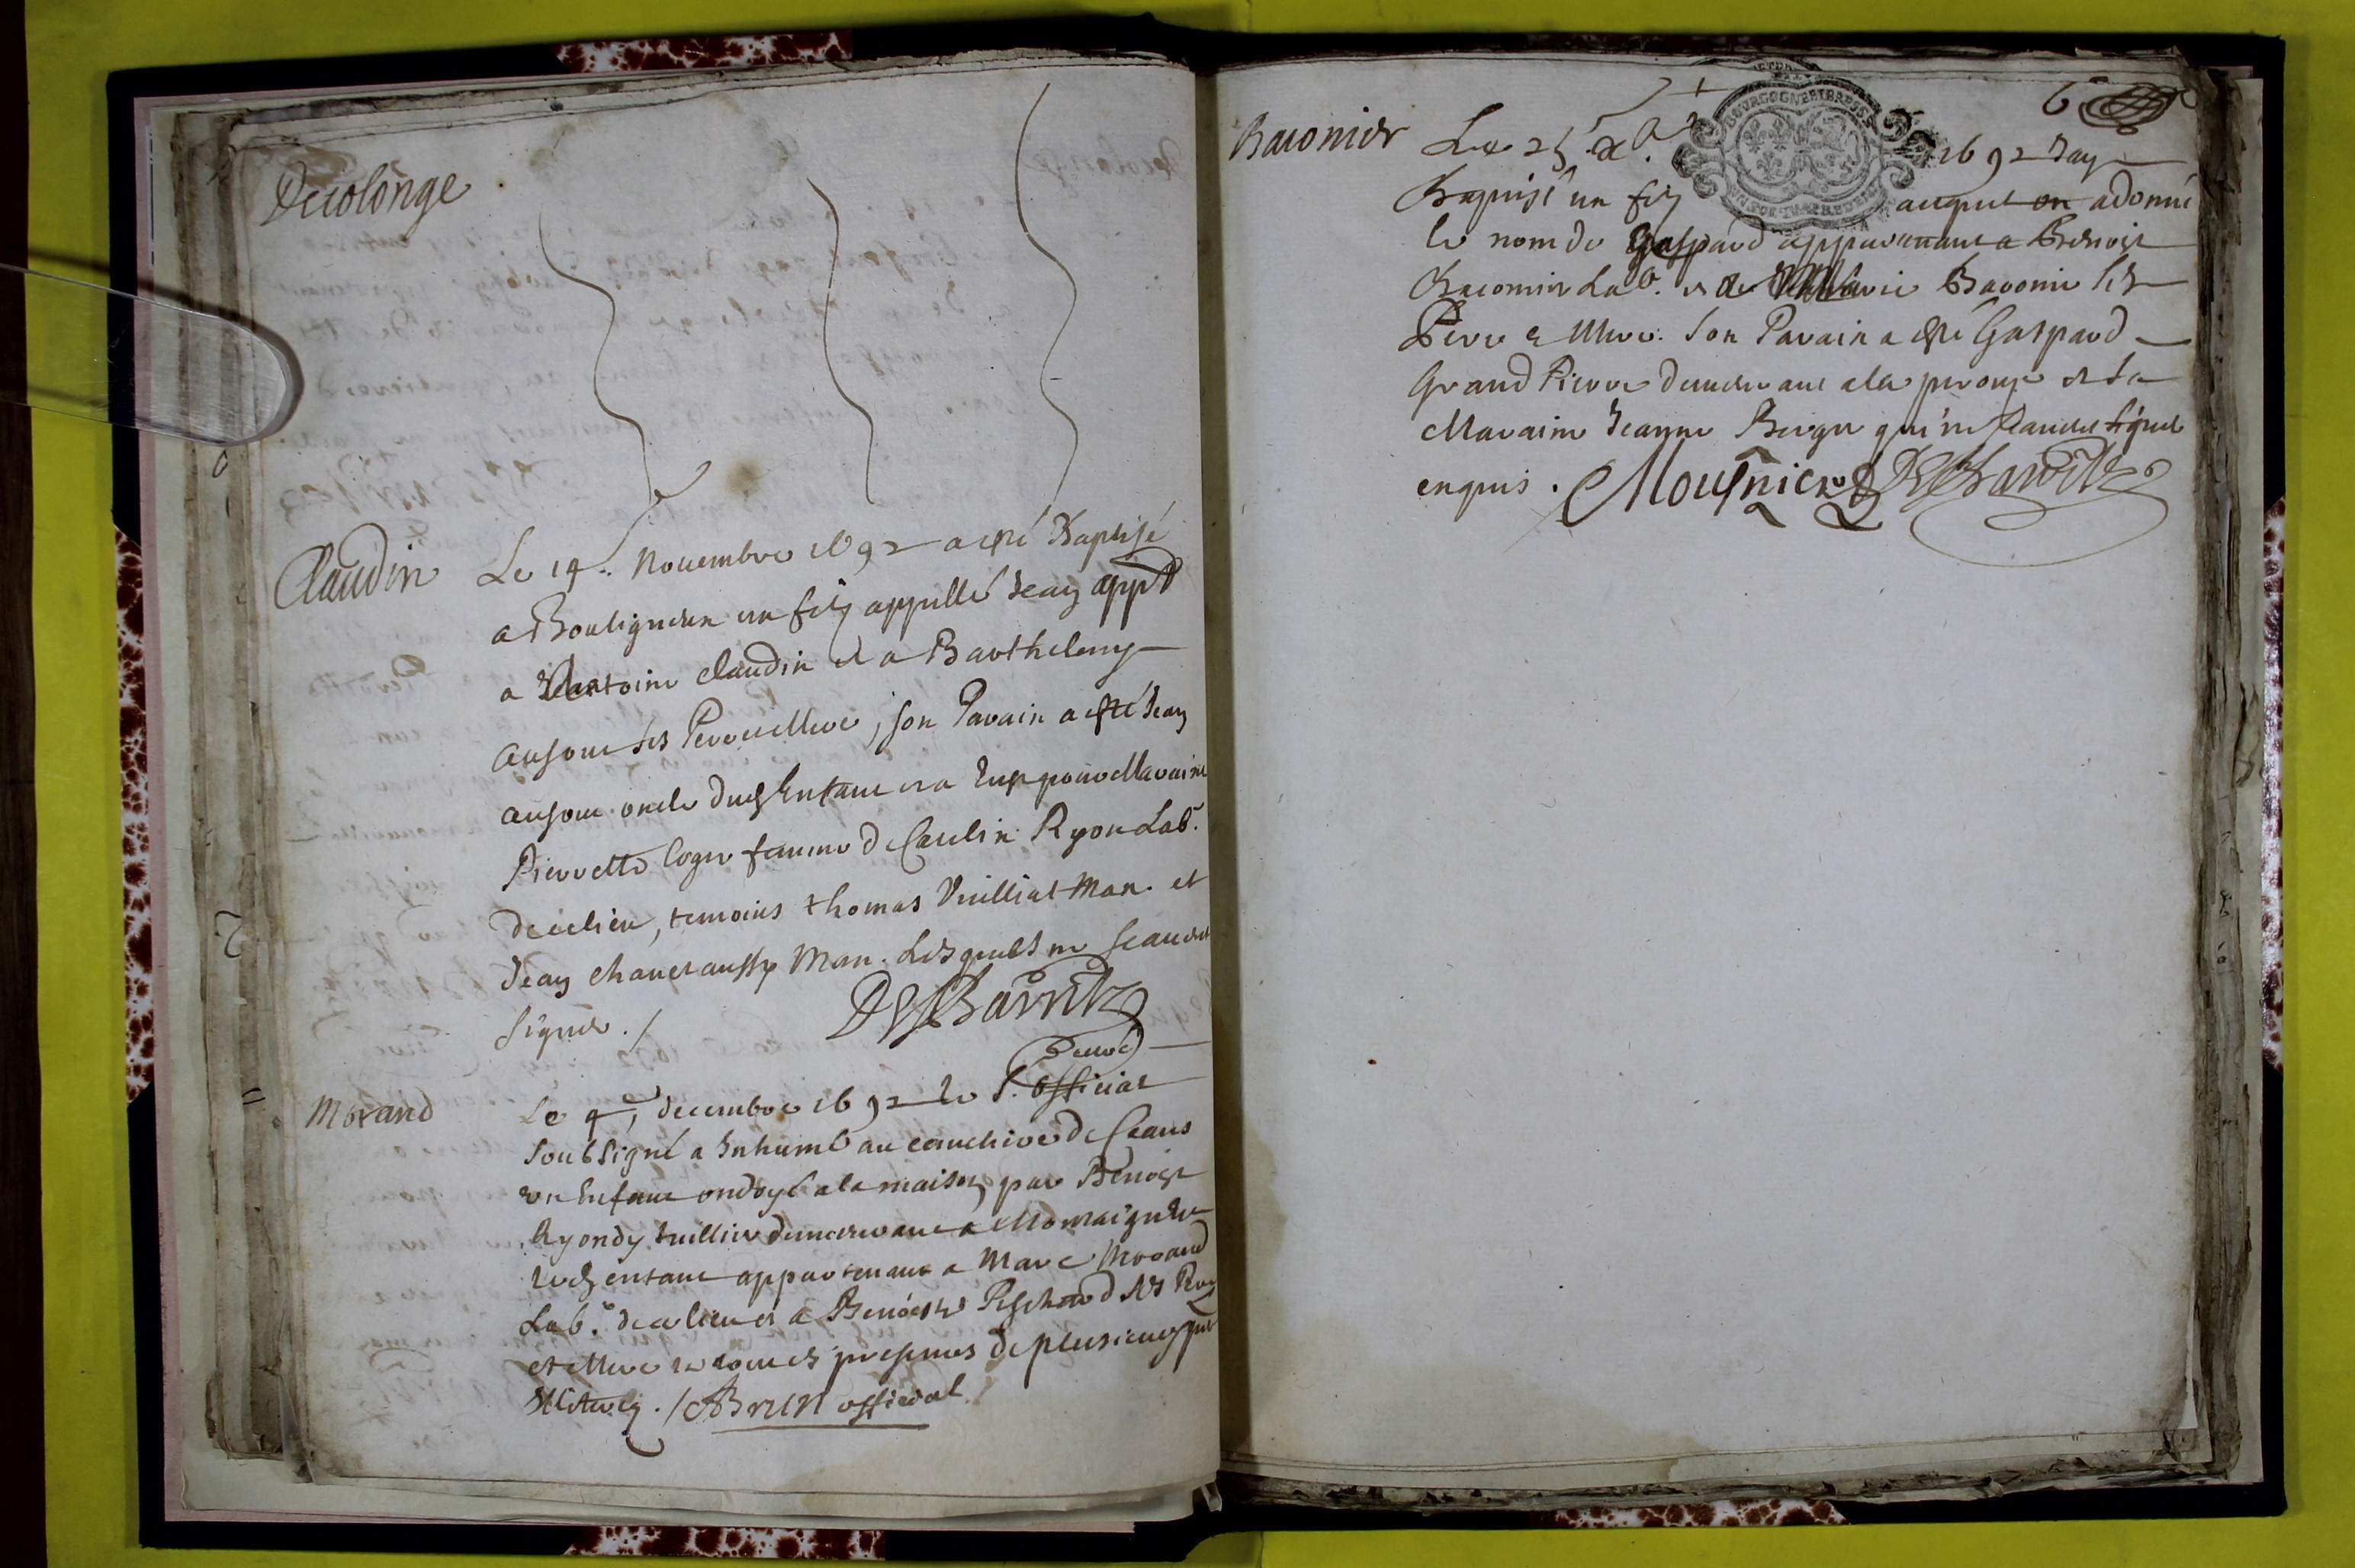 Decolonge
Claudin
Le 14. Novembre 1692 a esté Baptisé
a Bouligneux un filz appellé Jean appt
a Antoine Claudin et a Barthelemy
Ausone ses Pere et Mere, son Parain a esté Jean
Ausone oncle dud Enfant et a Eue pour Maraine
Pierrette Coger femme de Caulin Ryon Lab.r
de ce lieu, temoins Thomas Vuilliat Man. et
Jean Chanet aussy Man. Lesquels ne scauent
signer. /
Morand
Le 4e decembre 1692 le S. official
soubsigné a Inhumé au cemetiere de Ceans
un Enfant ondoyé a la maison par Benoist
Ryondy tuillier demeurant a
led enfant appartenant a Marc Morand
Lab.r de ce lieu et a Benoiste Pere
et Mere le tout es presences de plusieurs
. / Brun official
6
Baronier
Le 25 1692 Jay
Baptisé un filz auquel on a donné
le nom de Gaspard appartenant a Benoist
Lab.r et de Baronie ses
Pere & Mere. Son Parain a esté Gaspard
Grand Pierre demeurant a la perouse et sa
Maraine Jeanne Berger qui ne scauent signer
enquis. Mousnier